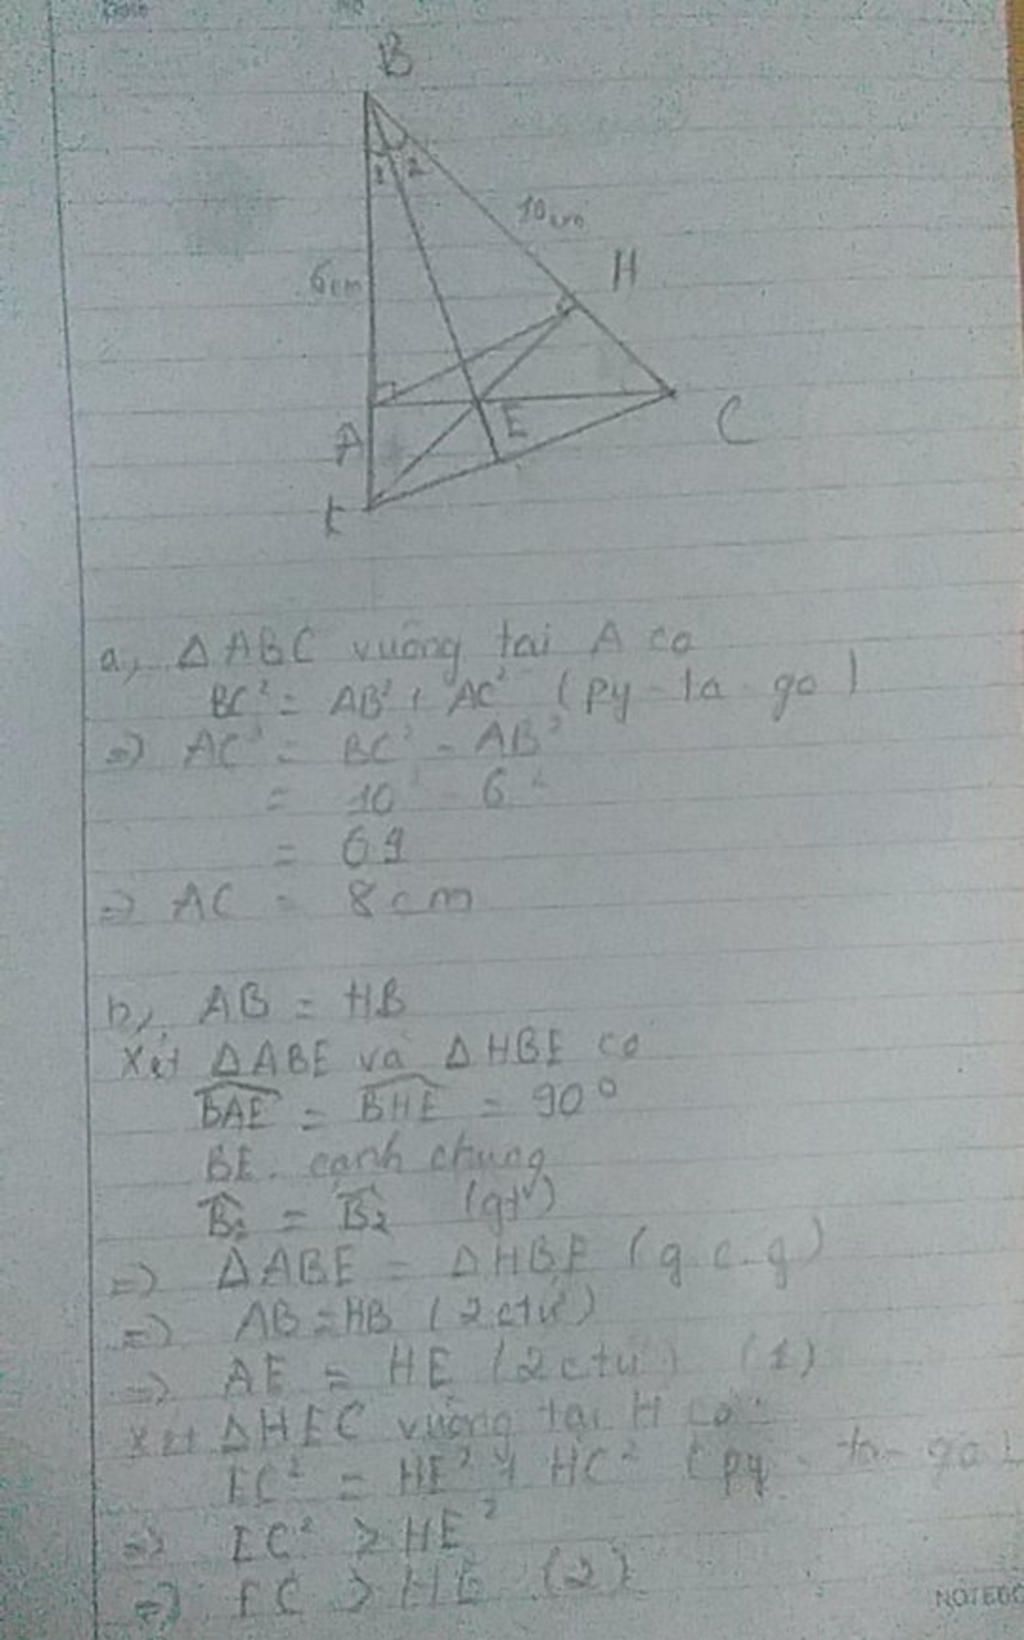 B
1 2
10cm
6cm
H
A
E
C
K
a, ΔABC vuông tại A có
BC² = AB² + AC² (py-ta-go)
=> AC² = BC² - AB²
= 10² - 6²
= 64
=> AC = 8cm
b, AB = HB
Xét ΔABE và ΔHBE có
BAE = BHE = 90°
BE cạnh chung
B₁ = B₂ (gt)
=> ΔABE = ΔHBE (g.c.g)
=> AB = HB (2ctư)
=> AE = HE (2ctư) (1)
Xét ΔHEC vuông tại H có
EC² = HE² + HC² (py-ta-go)
=> EC² > HE²
=> EC > HE (2)